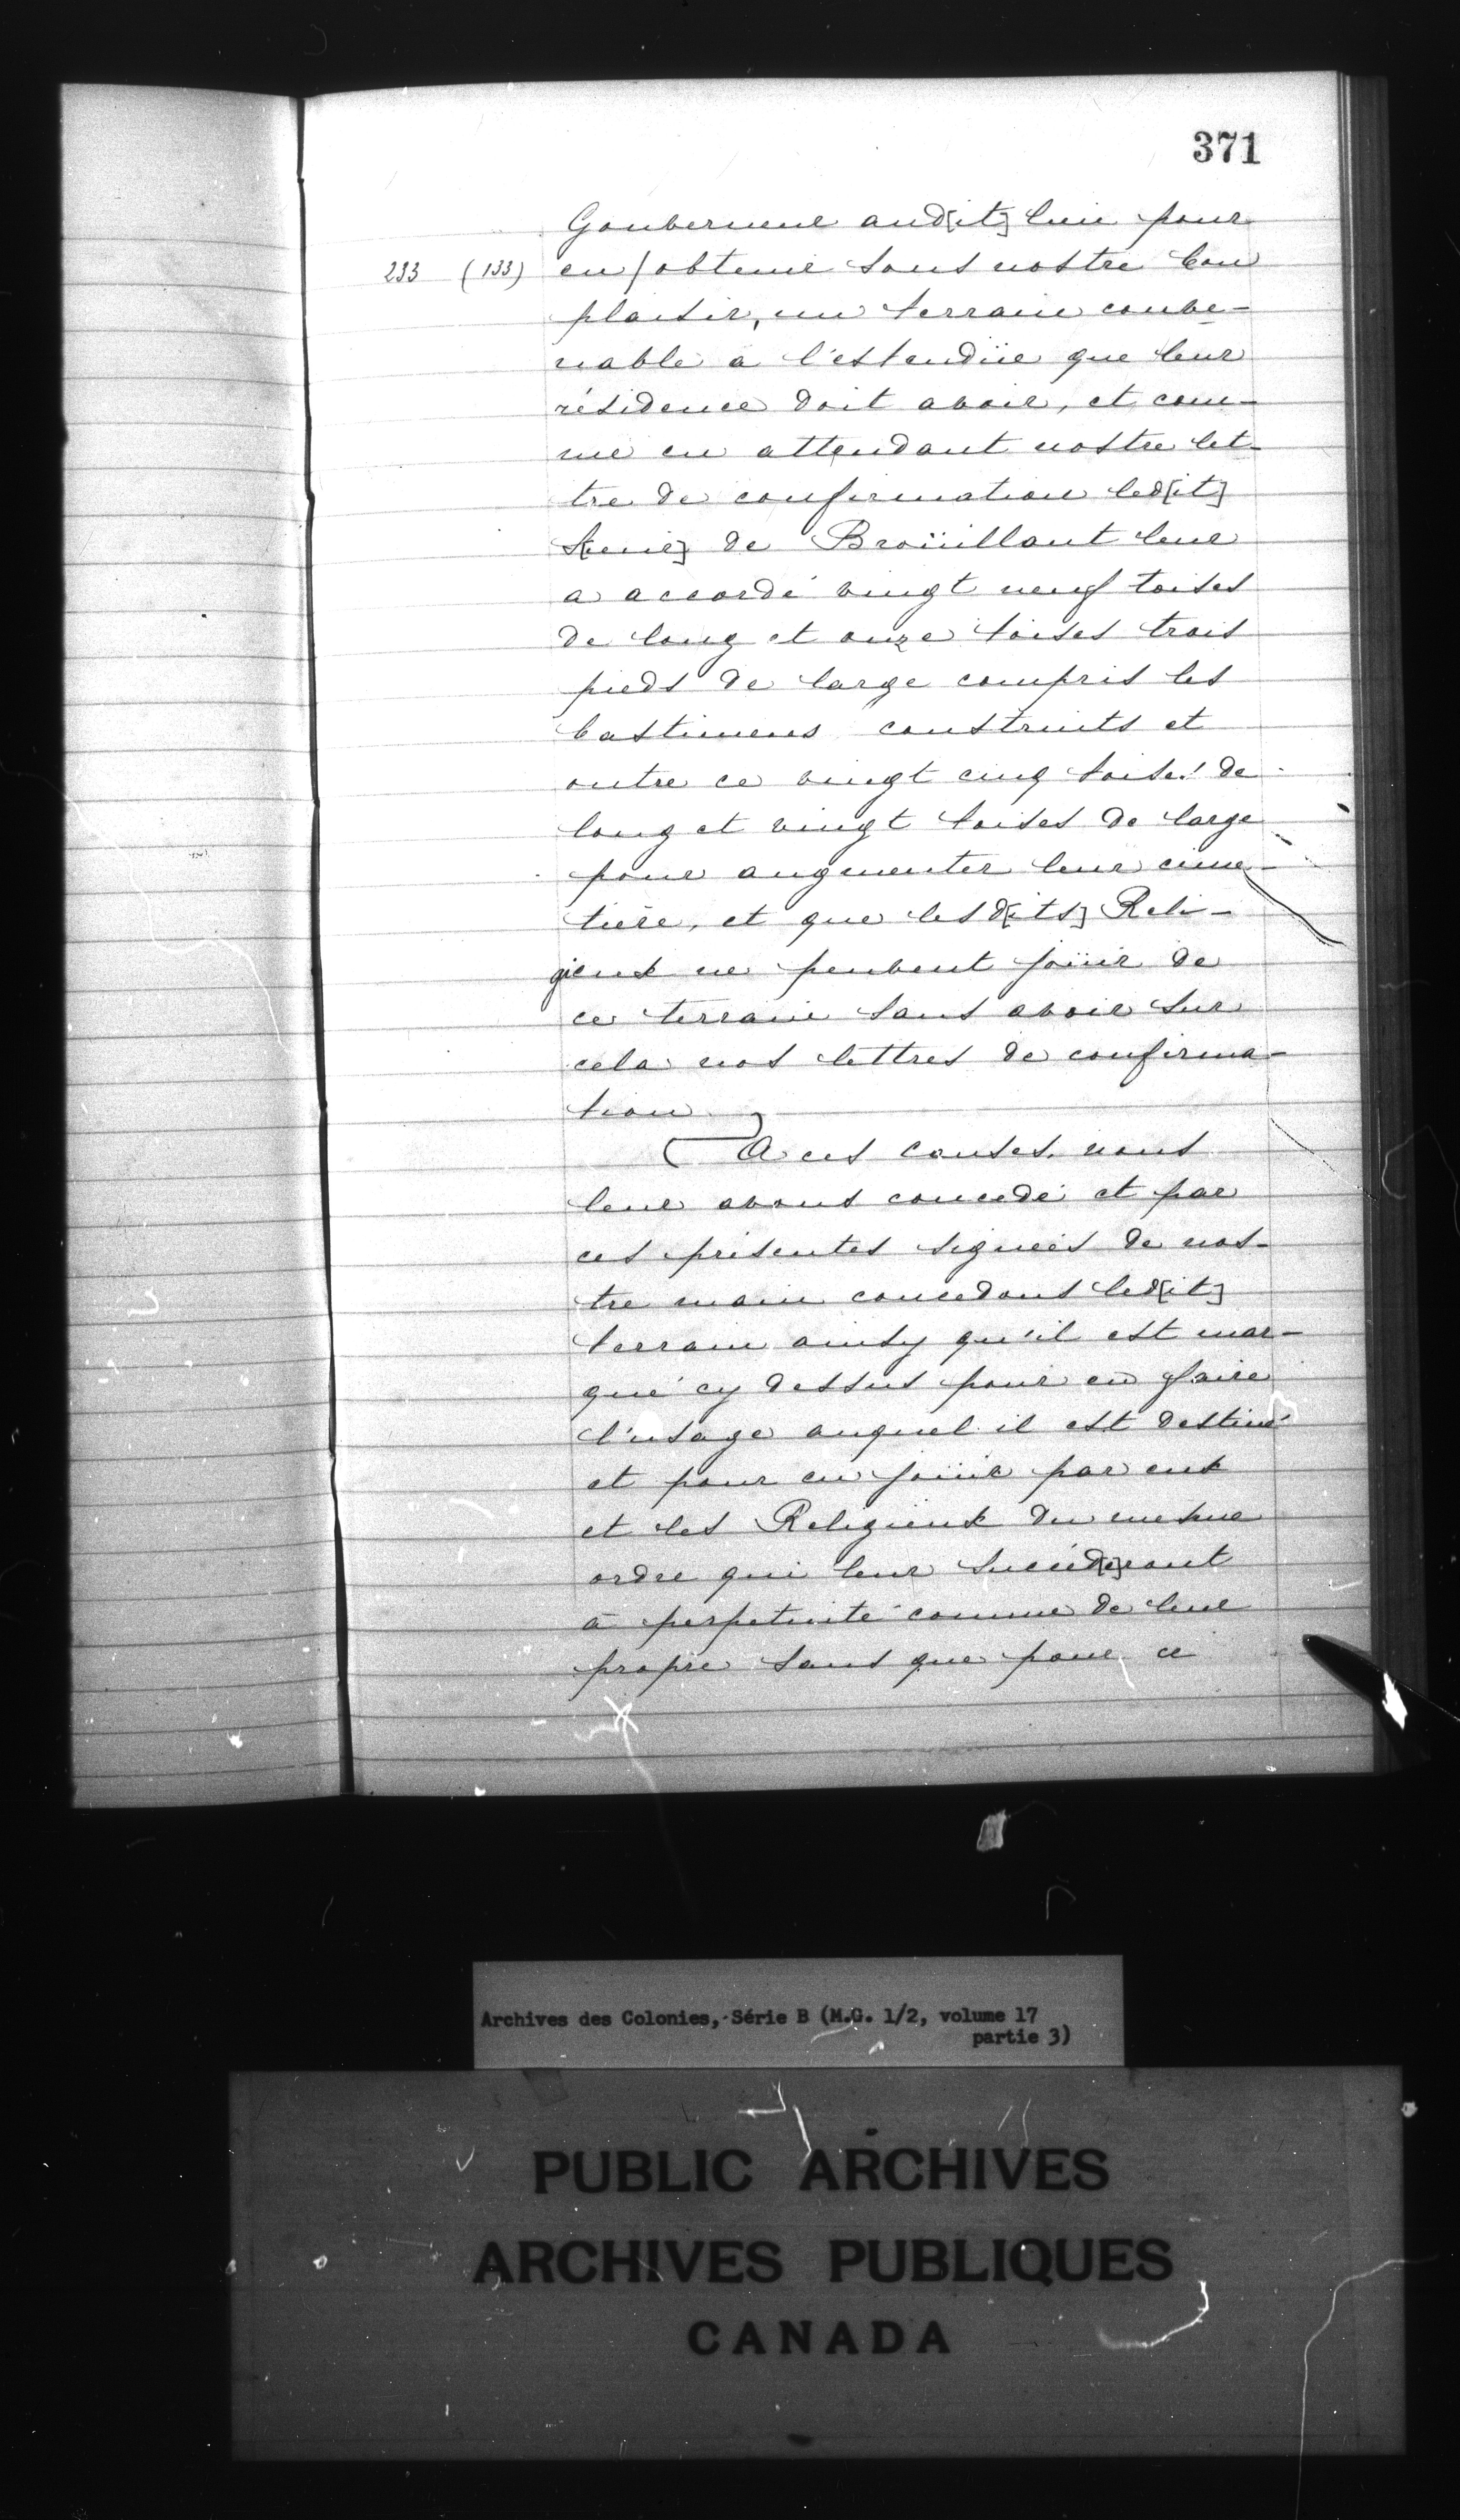 371
Gouverneur aud[it] lieu pour
233 (133) en/obtenir sous nostre bon
plaisir, un terrain conve-
nable a l'estendüe que leur
résidence doit avoir, et com-
me en attendant nostre let-
tre de confirmation led[it]
S[ieur] de Broüillant leur
a accordé vingt neuf toises
de long et onze toises trois
pieds de large compris les
bastimens construits et
outre ce vingt cinq toises de
long et vingt toises de large
pour augmenter leur cime-
tière, et que lesd[its] Reli-
gieux ne peuvent joüir de
ce terrain sans avoir sur
cela nos lettres de confirma-
tion
A ces causes, nous
leur avons concedé et par
ces présentes signées de nos-
tre main concedons led[it]
terrain ainsy qu'il est mar-
qué cy dessus pour en faire
l'usage auquel il est destiné
et pour en joüir par eux
et les Religieux du mesme
ordre qui leur succéd[e]ront
à perpetuité comme de leur
propre sans que pour ce
Archives des Colonies, Série B (M.G. 1/2, volume 17
partie 3)
PUBLIC ARCHIVES
ARCHIVES PUBLIQUES
CANADA